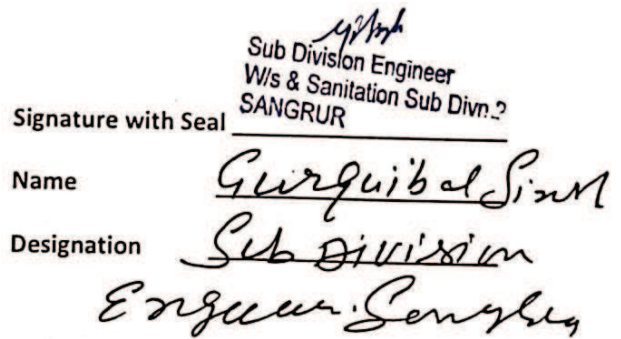 Sub Division Engineer
W/s & Sanitation Sub Divn.2
SANGRUR
Signature with Seal
Name Gurquibal Singh
Designation Sub Division
Engineer